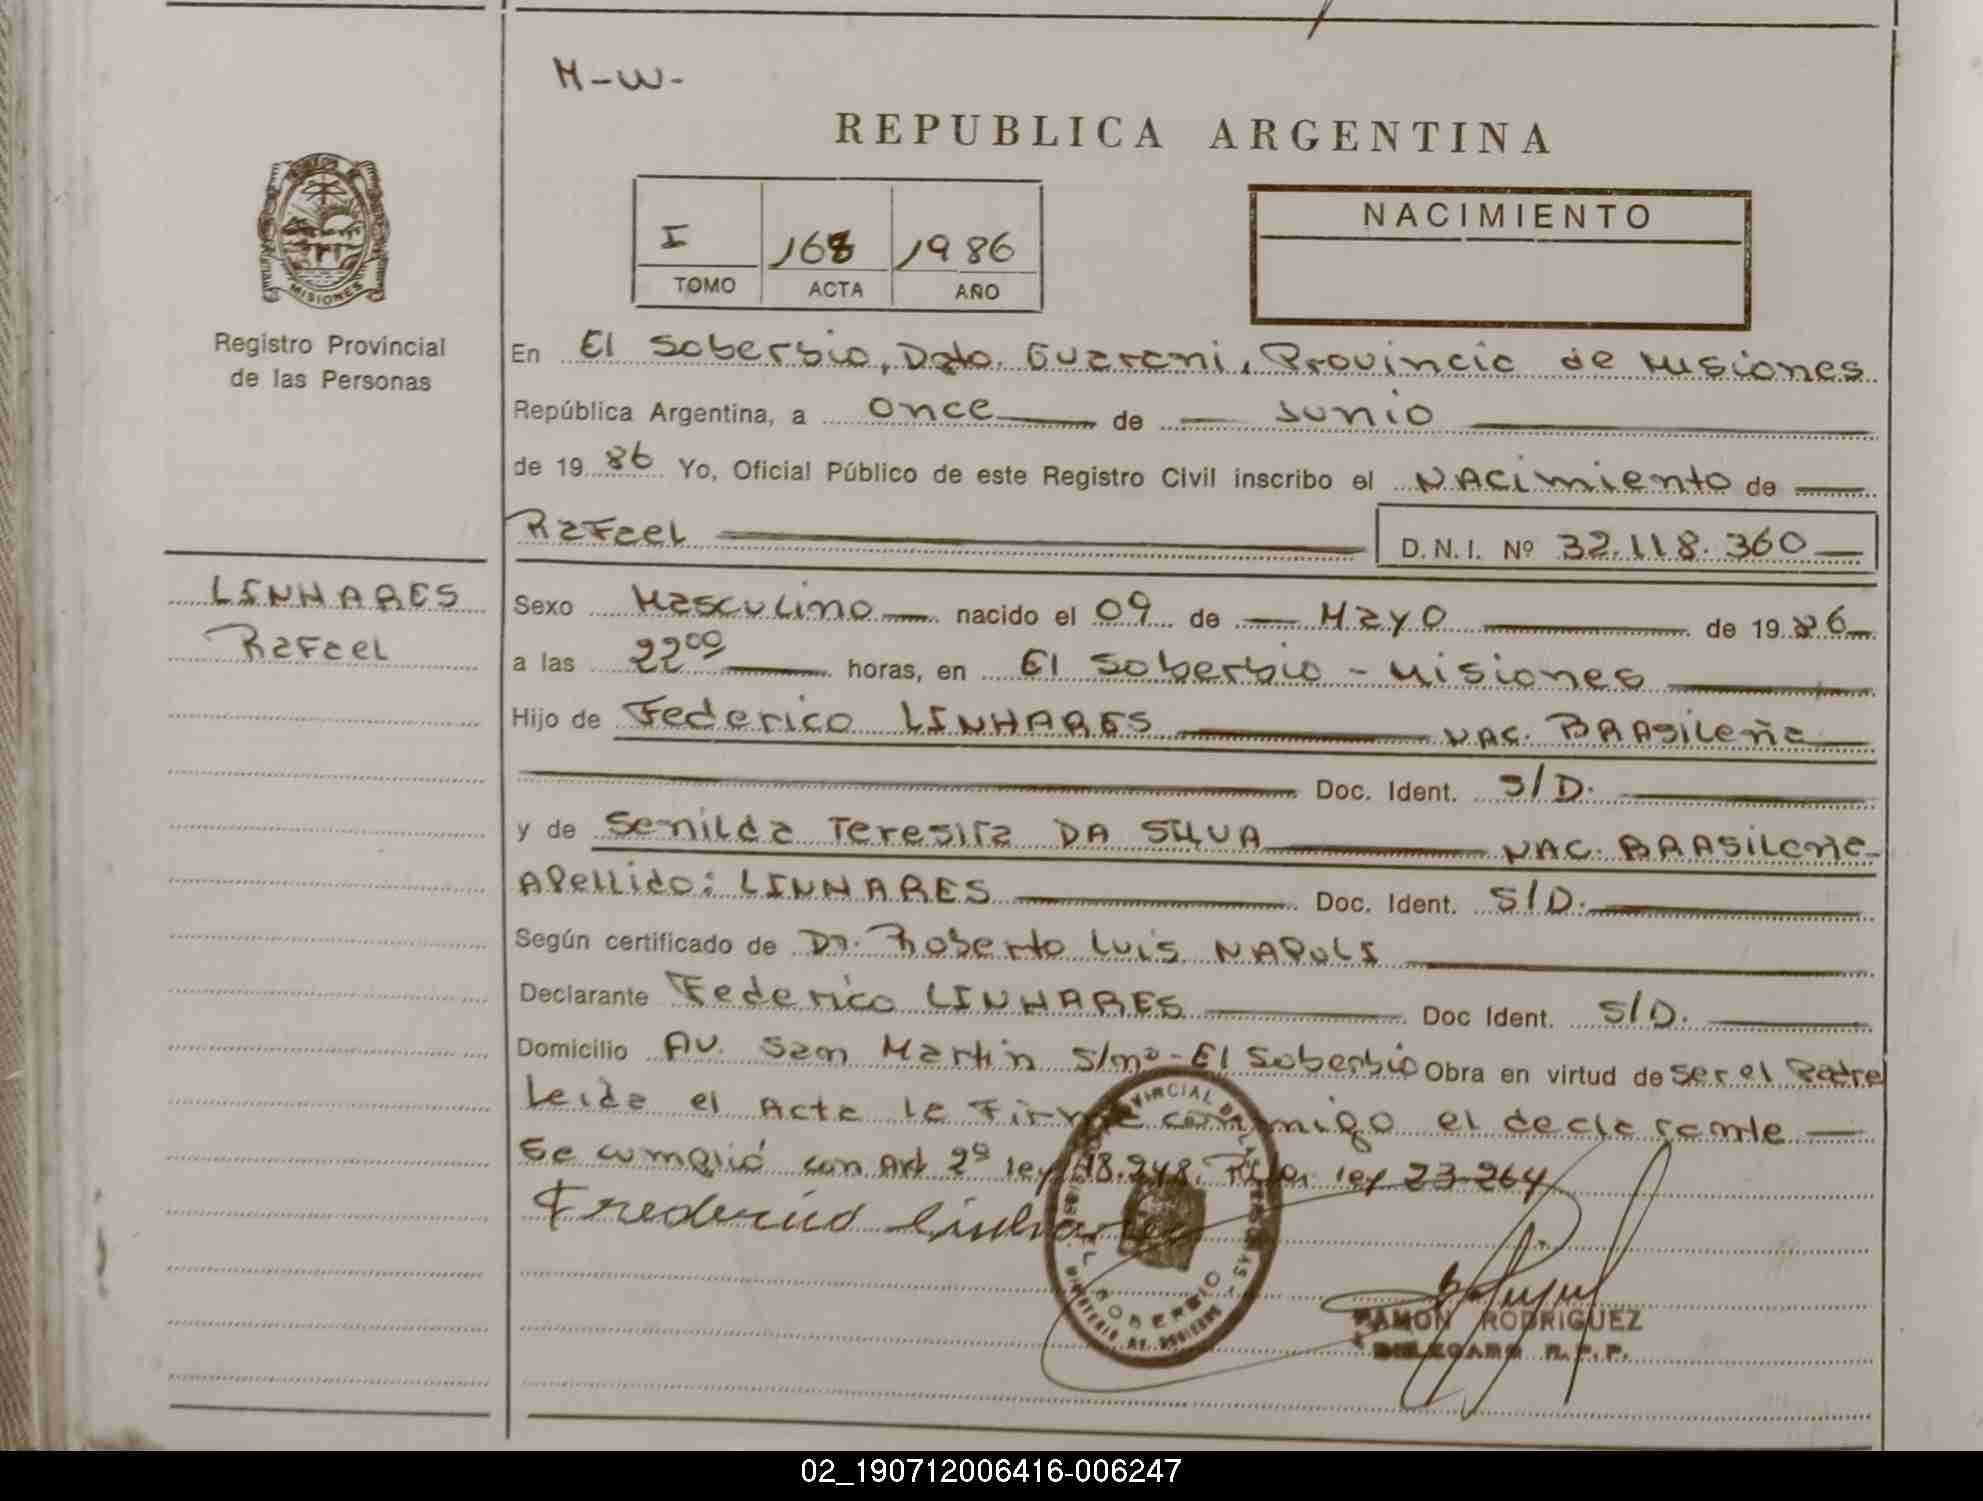 M-W-
REPUBLICA ARGENTINA
MISIONES
Registro Provincial
de las Personas
I 168 1986
TOMO ACTA AÑO
NACIMIENTO
En El Soberbio, Dpto. Guarani, Provincia de Misiones
República Argentina, a once de Junio
de 1986 Yo, Oficial Público de este Registro Civil inscribo el NACimiento de
Rafael D.N.I. Nº 32.118.360
LINHARES
Rafael
Sexo Masculino nacido el 09 de Mayo de 1986
a las 22⁰⁰ horas, en El Soberbio - Misiones
Hijo de Federico LINHARES NAC. BRASileña
Doc. Ident. S/D.
y de Senilda Teresita DA SILVA NAC. BRASileña
Apellido: LINHARES Doc. Ident. S/D.
Según certificado de Dr. Roberto Luis NAPOLI
Declarante Federico LINHARES Doc Ident. S/D.
Domicilio AV. San Martin S/nº - El Soberbio Obra en virtud de Ser el Padre
Leida el Acta la Firma conmigo el declarante
Se cumplió con Art 2º ley 18.248. ley 23.264
Frederico Linhares
EL SOBERBIO
RAMON RODRIGUEZ
DELEGADO R.P.P.
02_190712006416-006247